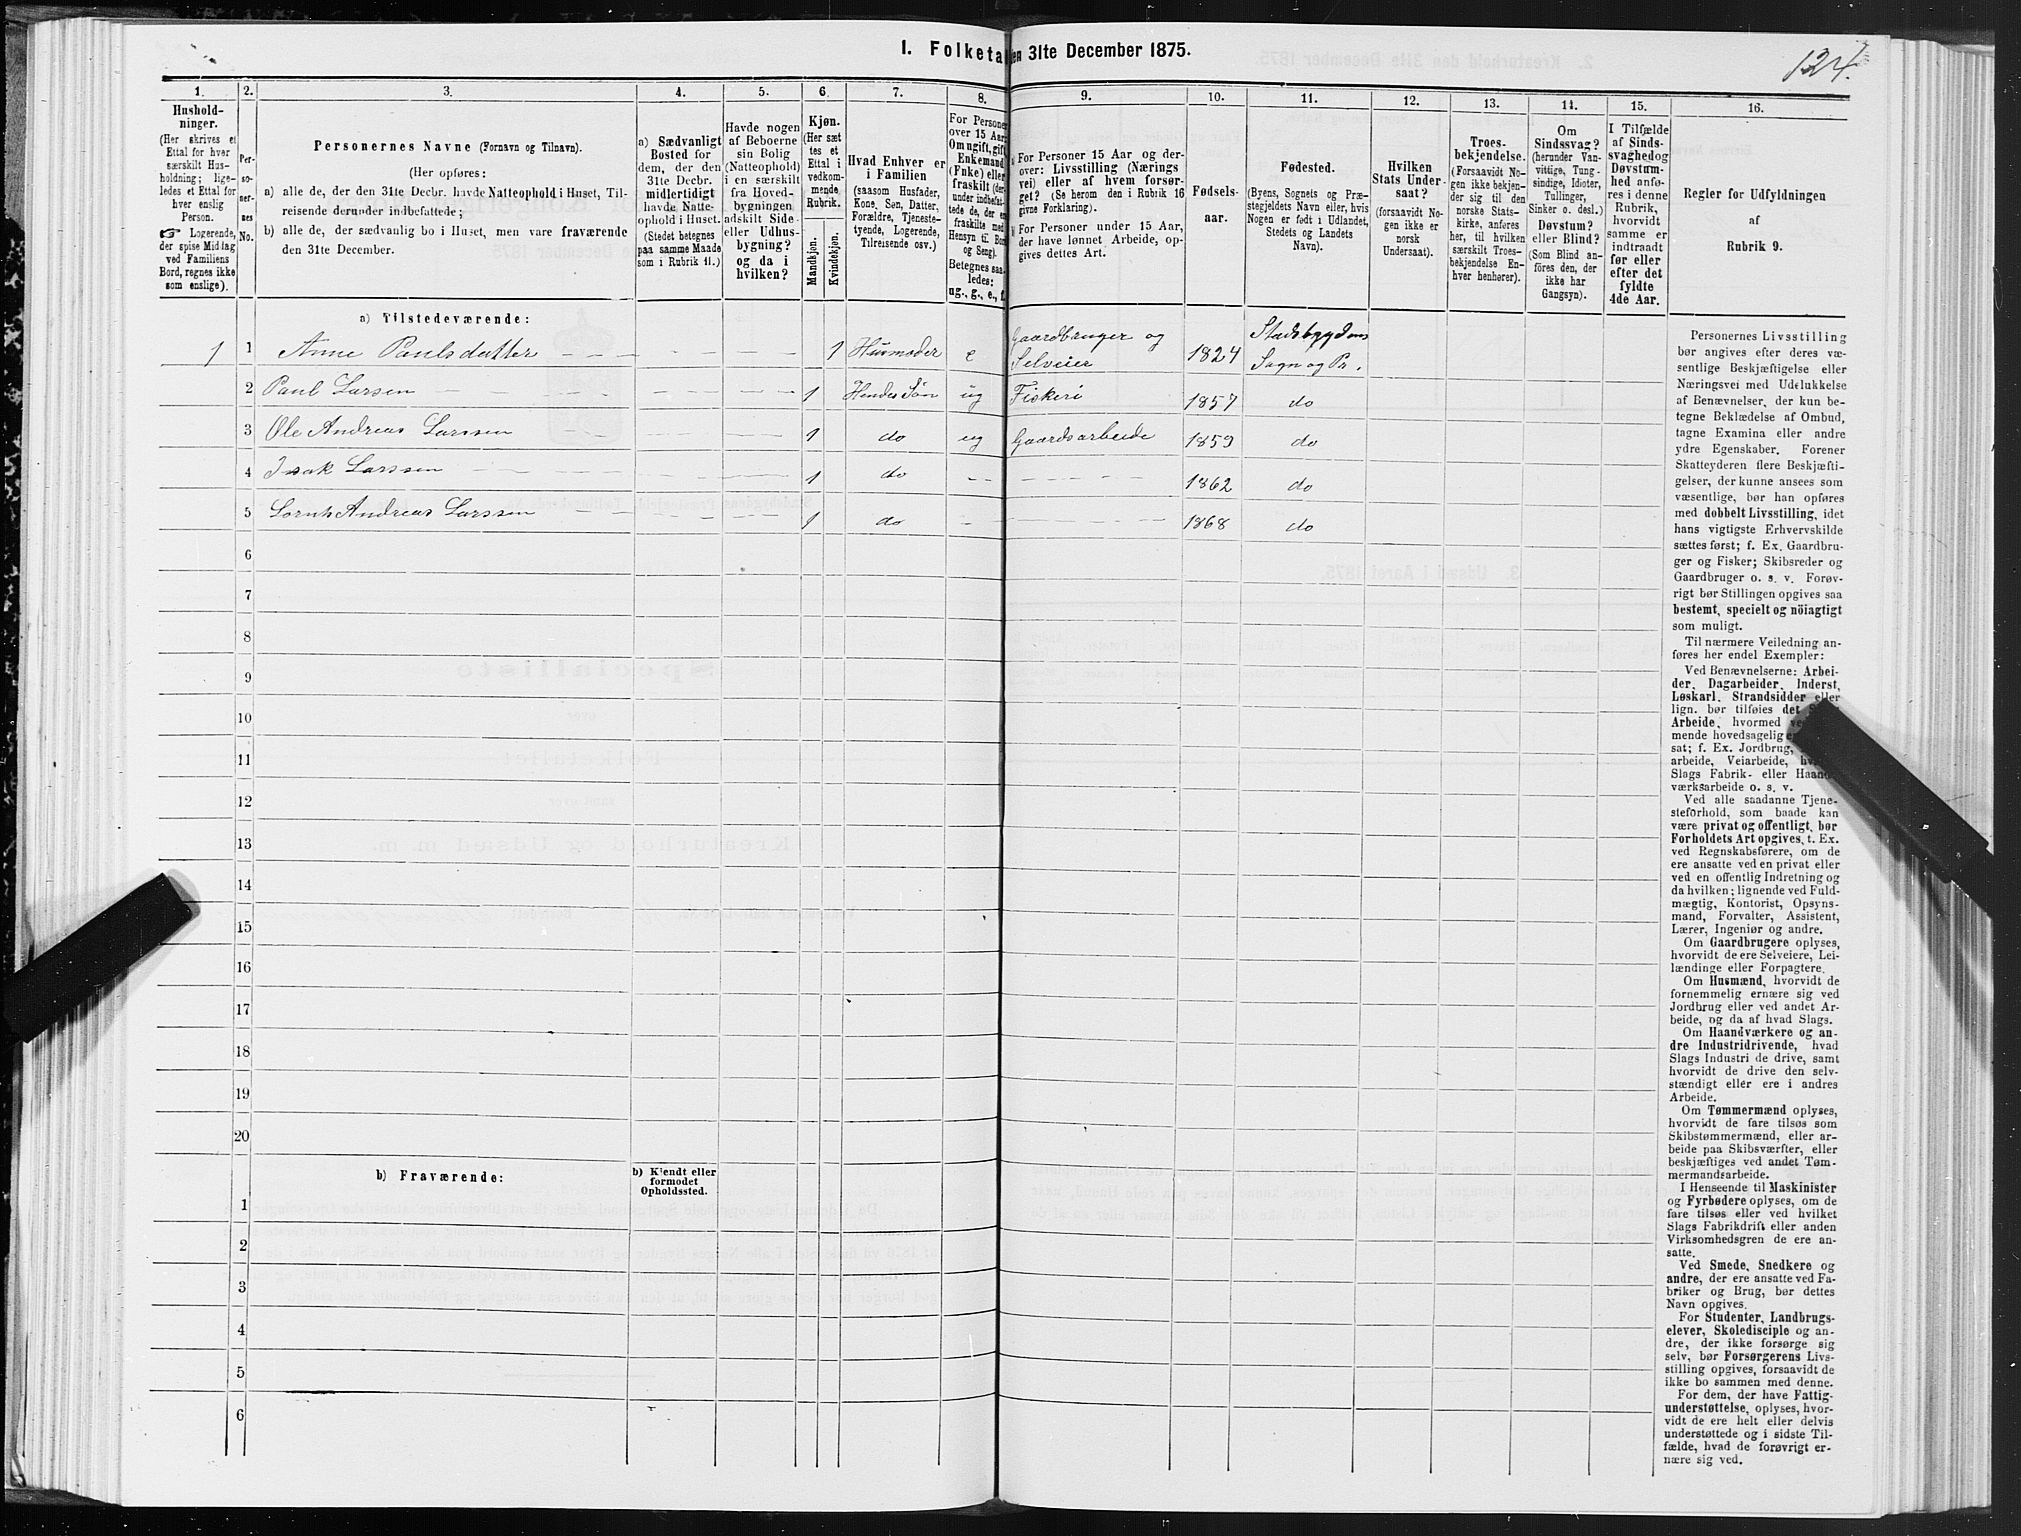 I. Folketa en 31te December 1875.
124.
1. 2. 3. 4. 5. 6. 7. 8. 9. 10. 11. 12. 13. 14. 15. 16.
Hushold-
ninger.
(Her skrives et
Ettal for hver
særskilt Hus-
holdning; lige-
ledes et Ettal for
hver enslig
Person.
☞ Logerende,
der spise Middag
ved Familiens
Bord, regnes ikke
som enslige).
Per-
so-
ner-
nes
No.
Personernes Navne (Fornavn og Tilnavn).
(Her opføres:
a) alle de, der den 31te Decbr. havde Natteophold i Huset, Til-
reisende derunder indbefattede;
b) alle de, der sædvanlig bo i Huset, men vare fraværende
den 31te December.
a) Sædvanligt
Bosted for
dem, der den
31te Decbr.
midlertidigt
havde Natte-
ophold i Huset.
(Stedet betegnes
paa samme Maade
som i Rubrik 11.)
Havde nogen
af Beboerne
sin Bolig
(Natteophold)
i en særskilt
fra Hoved-
bygningen
adskilt Side-
eller Udhus-
bygning?
og da i
hvilken?
Kjøn.
(Her sæt
tes et
Ettal i
vedkom-
mende
Rubrik.
Mandkjøn.
Kvindekjøn.
Hvad Enhver er
i Familien
(saasom Husfader,
Kone, Søn, Datter,
Forældre, Tjeneste-
tyende, Logerende,
Tilreisende osv.)
For Personer
over 15 Aar:
Om ugift, gift,
Enkemand
(Enke) eller
fraskilt (der-
under indbefat-
tede de, der er
fraskilte med
Hensyn til Bord
og Seng).
Betegnes saa-
ledes:
ug., g., e., f.
a) For Personer 15 Aar og der-
over: Livsstilling (Nærings
vei) eller af hvem forsør-
get? (Se herom den i Rubrik 16
givne Forklaring).
For Personer under 15 Aar,
der have lønnet Arbeide, op-
gives dettes Art.
Fødsels-
aar.
Fødested.
(Byens, Sognets og Præ-
stegjeldets Navn eller, hvis
Nogen er født i Udlandet,
Stedets og Landets
Navn).
Hvilken
Stats Under-
saat?
(forsaavidt No-
gen ikke er
norsk
Undersaat).
Troes-
bekjendelse.
(Forsaavidt No-
gen ikke bekjen-
der sig til den
norske Stats-
kirke, anføres
her, til hvilken
særskilt Troes-
bekjendelse En-
hver henhører).
Om
Sindssvag?
(herunder Van-
vittige, Tung-
sindige, Idioter,
Tullinger,
Sinker o. desl.)
Døvstum?
eller Blind?
(Som Blind an-
føres den, der
ikke har
Gangsyn).
I Tilfælde
af Sinds-
svaghed og
Døvstum-
hed anfø-
res i denne
Rubrik,
hvorvidt
samme er
indtraadt
før eller
efter det
fyldte
4de Aar.
Regler for Udfyldningen
af
Rubrik 9.
a) Tilstedeværende:
1 1 Anne Paulsdatter 1 Husmoder e Gaardbruger og Selveier 1824 Stadsbygdens Sogn og Pr.
2 Paul Larsen 1 Hendes Søn ug Fiskeri 1857 do
3 Ole Andreas Larssen 1 do ug Gaardsarbeide 1859 do
4 Isak Larssen 1 do 1862 do
5 Andreas Larssen 1 do 1868 do
6
7
8
9
10
11
12
13
14
15
16
17
18
19
20
b) Fraværende:
b) Kjendt eller
formodet
Opholdssted.
1
2
3
4
5
6
Personernes Livsstilling
bør angives efter deres væ-
sentlige Beskjæftigelse eller
Næringsvei med Udelukkelse
af Benævnelser, der kun be-
tegne Beklædelse af Ombud,
tagne Examina eller andre
ydre Egenskaber. Forener
Skatteyderen flere Beskjæfti-
gelser, der kunne ansees som
væsentlige, bør han opføres
med dobbelt Livsstilling, idet
hans vigtigste Erhvervskilde
sættes først; f. Ex. Gaardbru-
ger og Fisker; Skibsreder og
Gaardbruger o. s. v. Forøv-
rigt bør Stillingen opgives saa
bestemt, specielt og nöiagtigt
som muligt.
Til nærmere Veiledning an-
føres her endel Exempler:
Ved Benævnelserne: Arbei-
der, Dagarbeider, Inderst,
Løskarl, Strandsidder eller
lign. bør tilføies det
Arbeide, hvormed
mende hovedsagelig
sat; f. Ex. Jordbrug,
arbeide, Veiarbeide,
Slags Fabrik- eller
værksarbeide o. s. v.
Ved alle saadanne Tjene-
steforhold, som baade kan
være privat og offentligt, bør
Forholdets Art opgives, t. Ex.
ved Regnskabsførere, om de
ere ansatte ved en privat eller
ved en offentlig Indretning og
da hvilken; lignende ved Fuld-
mægtig, Kontorist, Opsyns-
mand, Forvalter, Assistent,
Lærer, Ingeniør og andre.
Om Gaardbrugere oplyses,
hvorvidt de ere Selveiere, Lei-
lændinge eller Forpagtere.
Om Husmænd, hvorvidt de
fornemmelig ernære sig ved
Jordbrug eller ved andet Ar-
beide, og da af hvad Slags.
Om Haandværkere og an-
dre Industridrivende, hvad
Slags Industri de drive, samt
hvorvidt de drive den selv-
stændigt eller ere i andres
Arbeide.
Om Tømmermænd oplyses,
hvorvidt de fare tilsøs som
Skibstømmermænd, eller ar-
beide paa Skibsværfter, eller
beskjæftiges ved andet Tøm-
mermandsarbeide.
I Henseende til Maskinister
og Fyrbødere oplyses, om de
fare tilsøs eller ved hvilket
Slags Fabrikdrift eller anden
Virksomhedsgren de ere an-
satte.
Ved Smede, Snedkere og
andre, der ere ansatte ved Fa-
briker og Brug, bør dettes
Navn opgives.
For Studenter, Landbrugs-
elever, Skoledisciple og an-
dre, der ikke forsørge sig
selv, bør Forsørgerens Livs-
stilling opgives, forsaavidt de
ikke bo sammen med denne.
For dem, der have Fattig-
understøttelse, oplyses, hvor-
vidt de ere helt eller delvis
understøttede og i sidste Til-
fælde, hvad de forøvrigt er-
nære sig ved.